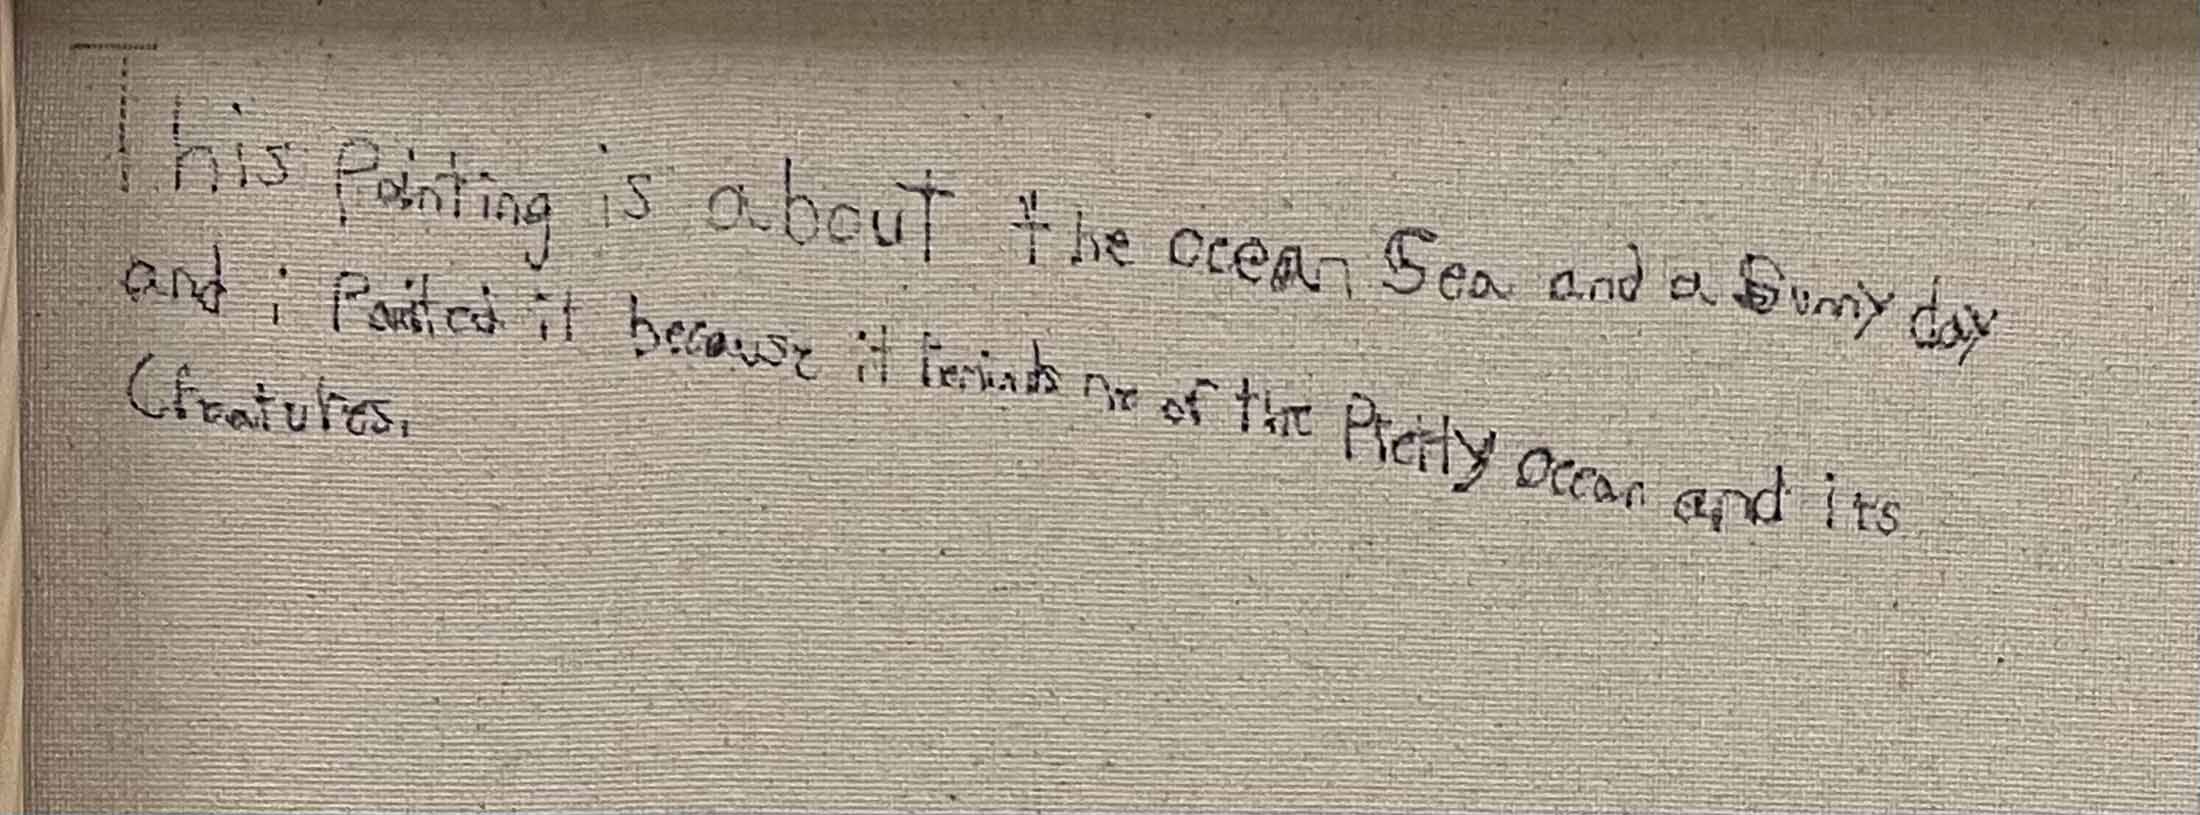 This Painting is about the ocean Sea and a Sunny day
and i Painted it because it reminds me of the Pretty ocean and its
Creatures.